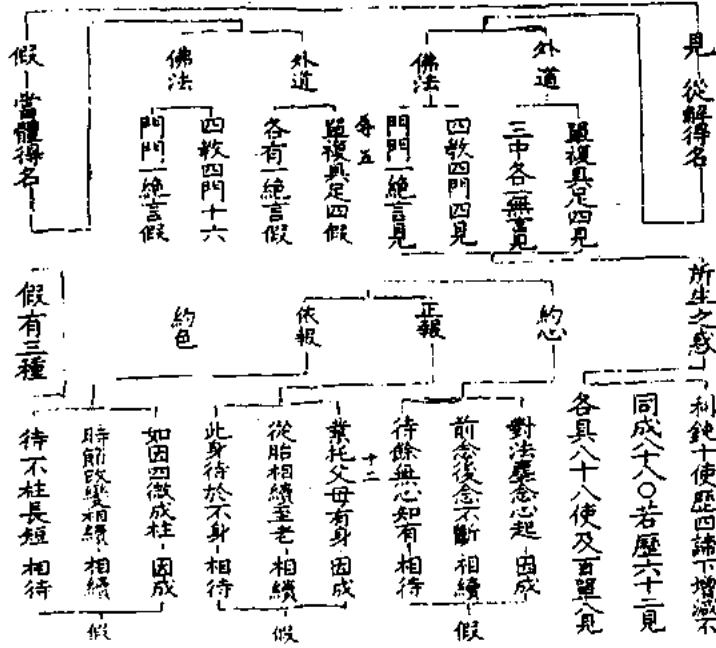 見 從解得名
外道
單複具足四見
三中各一無言見
佛法
四教四門四見
門門一絕言見
外道
單複具足四假
各有一絕言假
每五
佛法
四教四門十六
門門一絕言假
假 當體得名
所生之惑
利鈍十使歷四諦下增減不
同成八十八○若歷六十二見
各具八十八使及百單八見
假有三種
約心
對法塵念心起 因成
前念後念不斷 相續
待餘無心知有 相待
假
正報
依報
業托父母有身 因成
從胎相續至老 相續
此身待於不身 相待
十二
假
約色
如因四微成柱 因成
時節改變相續 相續
待不柱長短 相待
假